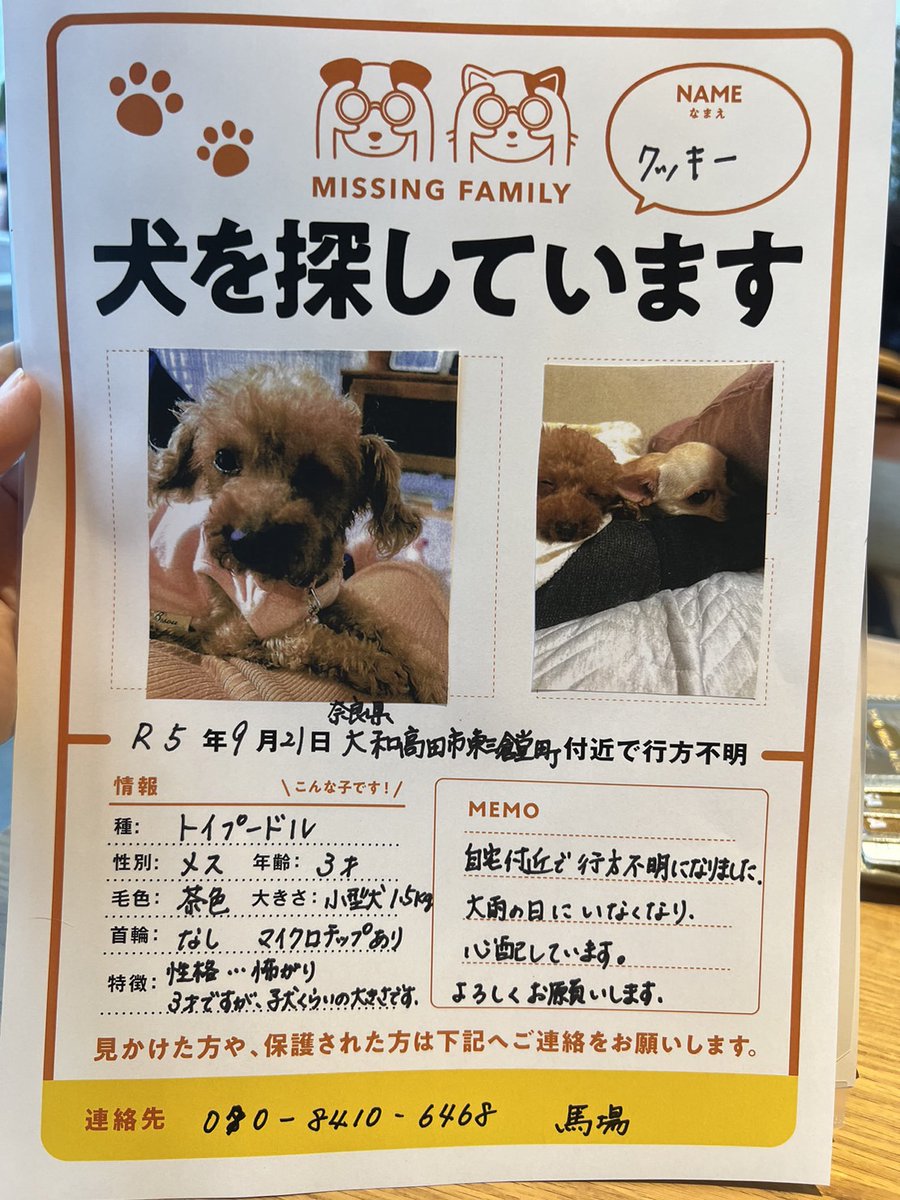 NAME
なまえ
クッキー
MISSING FAMILY
犬を探しています
奈良県
R5年9月21日 大和高田市東三倉堂町付近で行方不明
情報 \こんな子です!/
種: トイプードル
性別: メス 年齢: 3才
毛色: 茶色 大きさ: 小型犬 1.5kg
首輪: なし マイクロチップあり
特徴: 性格…怖がり
3才ですが、子犬くらいの大きさです.
MEMO
自宅付近で行方不明になりました.
大雨の日にいなくなり、
心配しています。
よろしくお願いします.
見かけた方や、保護された方は下記へご連絡をお願いします。
連絡先 080-8410-6468 馬場